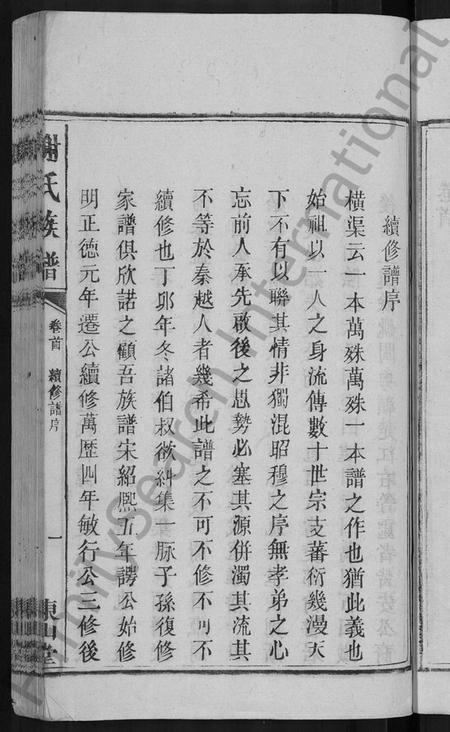 續修譜序
橫渠云一本萬殊萬殊一本譜之作也猶此義也
始祖以一人之身流傳數十世宗支蕃衍幾漫天
下不有以聯其情非獨混昭穆之序無孝弟之心
忘前人承先啟後之思勢必塞其源併濁其流其
不等於秦越人者幾希此譜之不可不修不可不
續修也丁卯年冬諸伯叔欲糾集一脉子孫復修
家譜俱欣諾之顧吾族譜宋紹熙五年諤公始修
明正德元年遷公續修萬歷四年敏行公三修後
謝氏族譜
卷首 續修譜序
一
東山堂
FamilySearch International